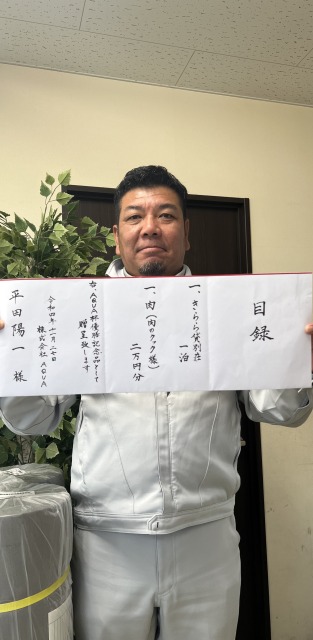 目録
一、きらら貸別荘
一泊
一、肉(肉のクック様)
二万円分
右、AQUA杯優勝記念品として
贈呈致します
令和四年十一月二十七日
株式会社AQUA
平田陽一様